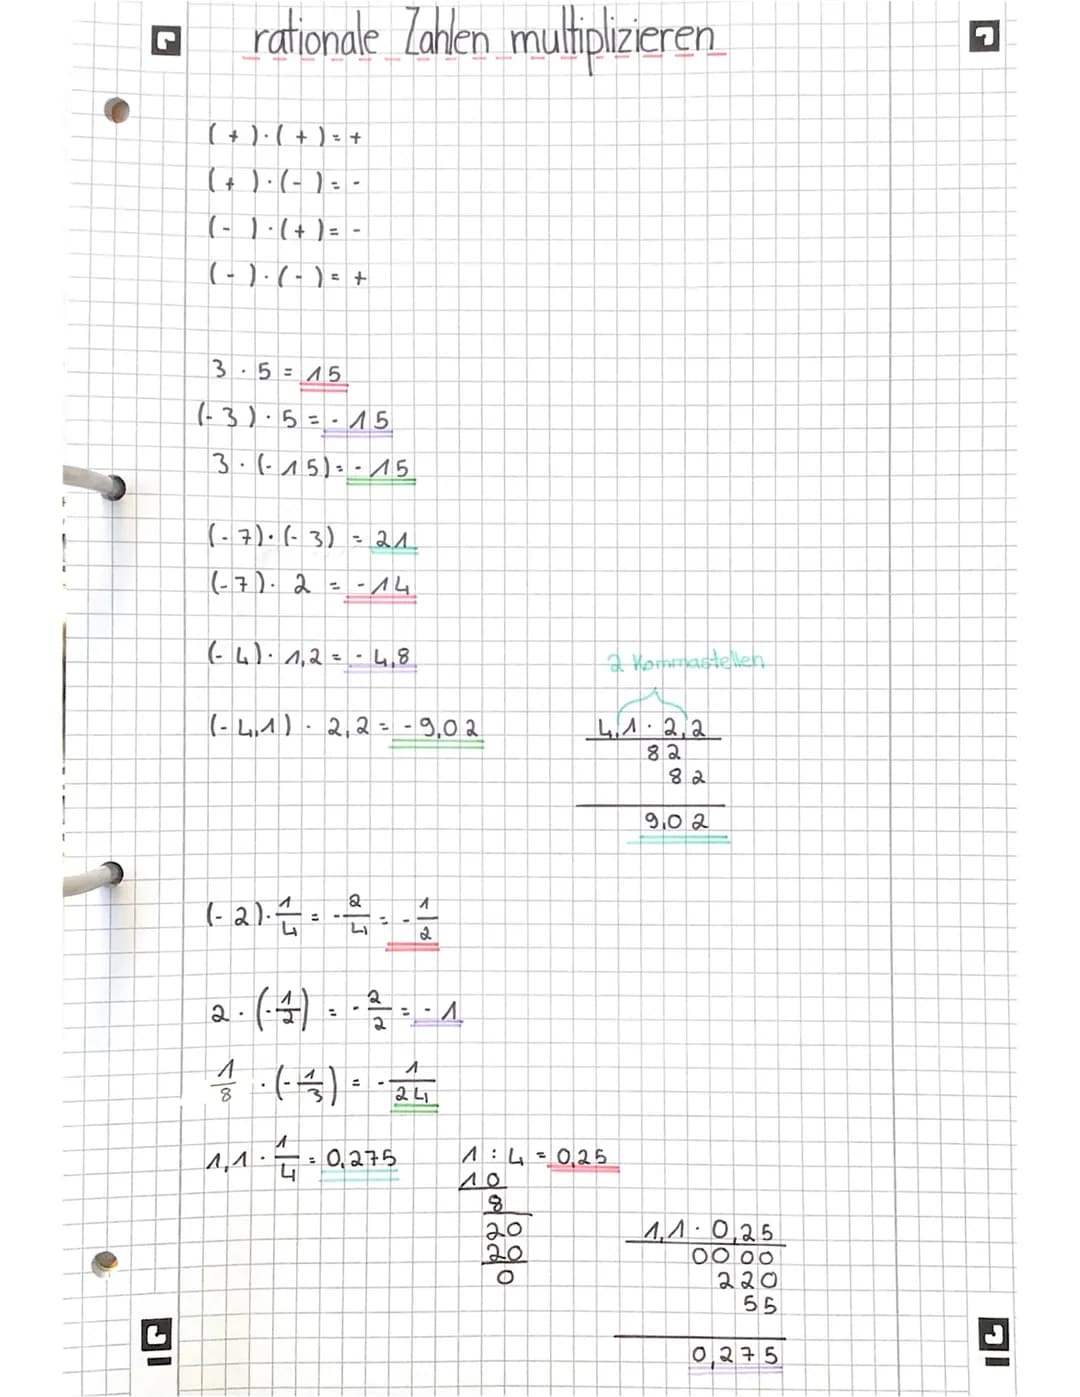 rationale Zahlen multiplizieren
(+)·(+)=+
(+)·(-)=-
(-)·(+)=-
(-)·(-)=+
3·5=15
(-3)·5=-15
3·(-15)=-15
(-7)·(-3)=21
(-7)·2=-14
(-4)·1,2=-4,8
2 Kommastellen
(-4,1)·2,2=-9,02
4,1·2,2
82
82
9,02
(-2)·1/4=-2/4=-1/2
2·(-1/2)=-2/2=-1
1/8·(-1/3)=-1/24
1,1·1/4=0,275
1:4=0,25
10
8
20
20
0
1,1·0,25
0000
220
55
0,275